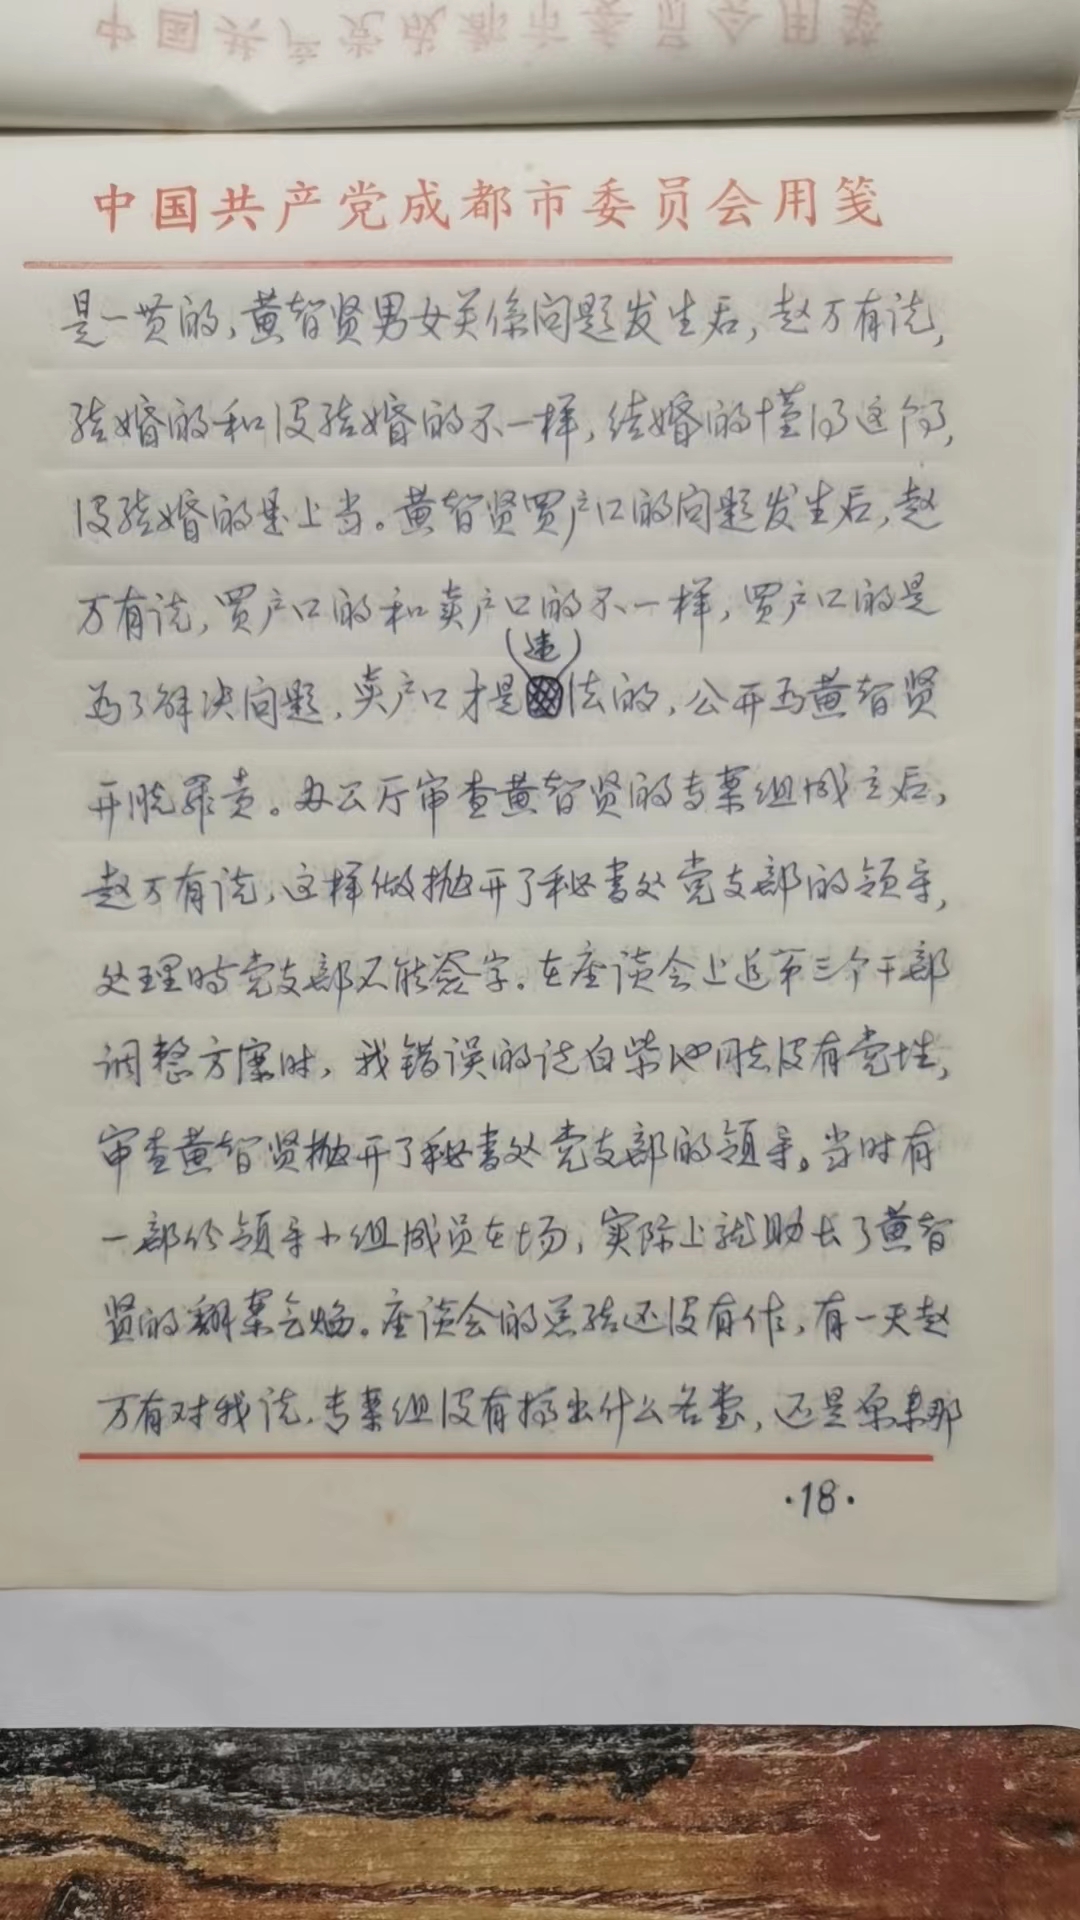 中国共产党成都市委员会用笺
是一贯的，黄智贤男女关係问题发生后，赵万有说，
结婚的和没结婚的不一样，结婚的懂得这个，
没结婚的是上当。黄智贤買户口的问题发生后，赵
万有说，買户口的和卖户口的不一样，買户口的是
(违)
为了解决问题，卖户口才是法的，公开为黄智贤
开脱罪责。办公厅审查黄智贤的专案组成立后，
赵万有说，这样做抛开了秘书处党支部的领导，
处理时党支部不能签字。在座谈会上追第三个干部
调整方案时，我错误的说白紫池同志没有党性，
审查黄智贤抛开了秘书处党支部的领导。当时有
一部份领导小组成员在场，实际上就助长了黄智
贤的翻案气焰。座谈会的总结还没有作，有一天赵
万有对我说，专案组没有搞出什么名堂，还是原来那
·18·